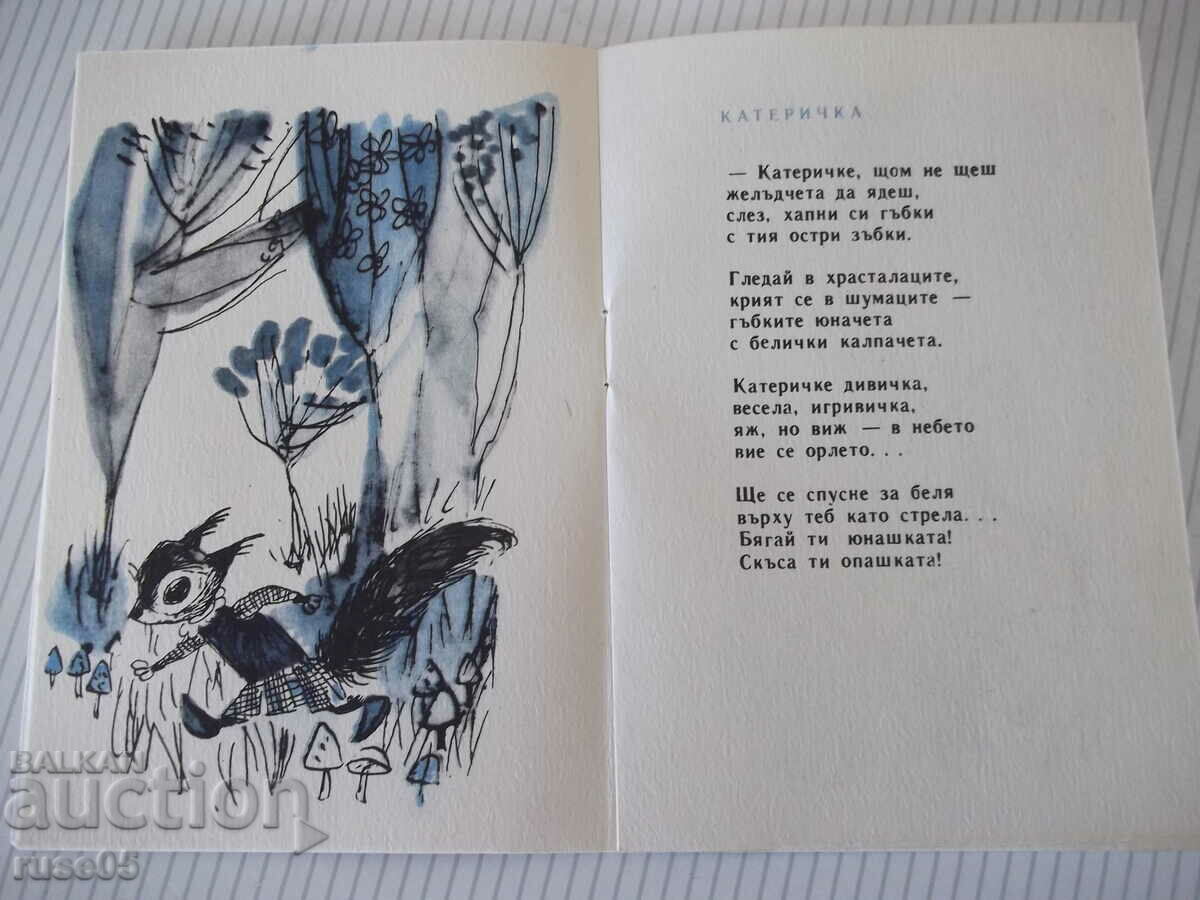 КАТЕРИЧКА
— Катеричке, щом не щеш
желъдчета да ядеш,
слез, хапни си гъбки
с тия остри зъбки.
Гледай в храсталаците,
крият се в шумаците —
гъбките юначета
с белички калпачета.
Катеричке дивичка,
весела, игривичка,
яж, но виж — в небето
вие се орлето. . .
Ще се спусне за беля
върху теб като стрела. . .
Бягай ти юнашката!
Скъса ти опашката!
BALKAN
auction
ruse05